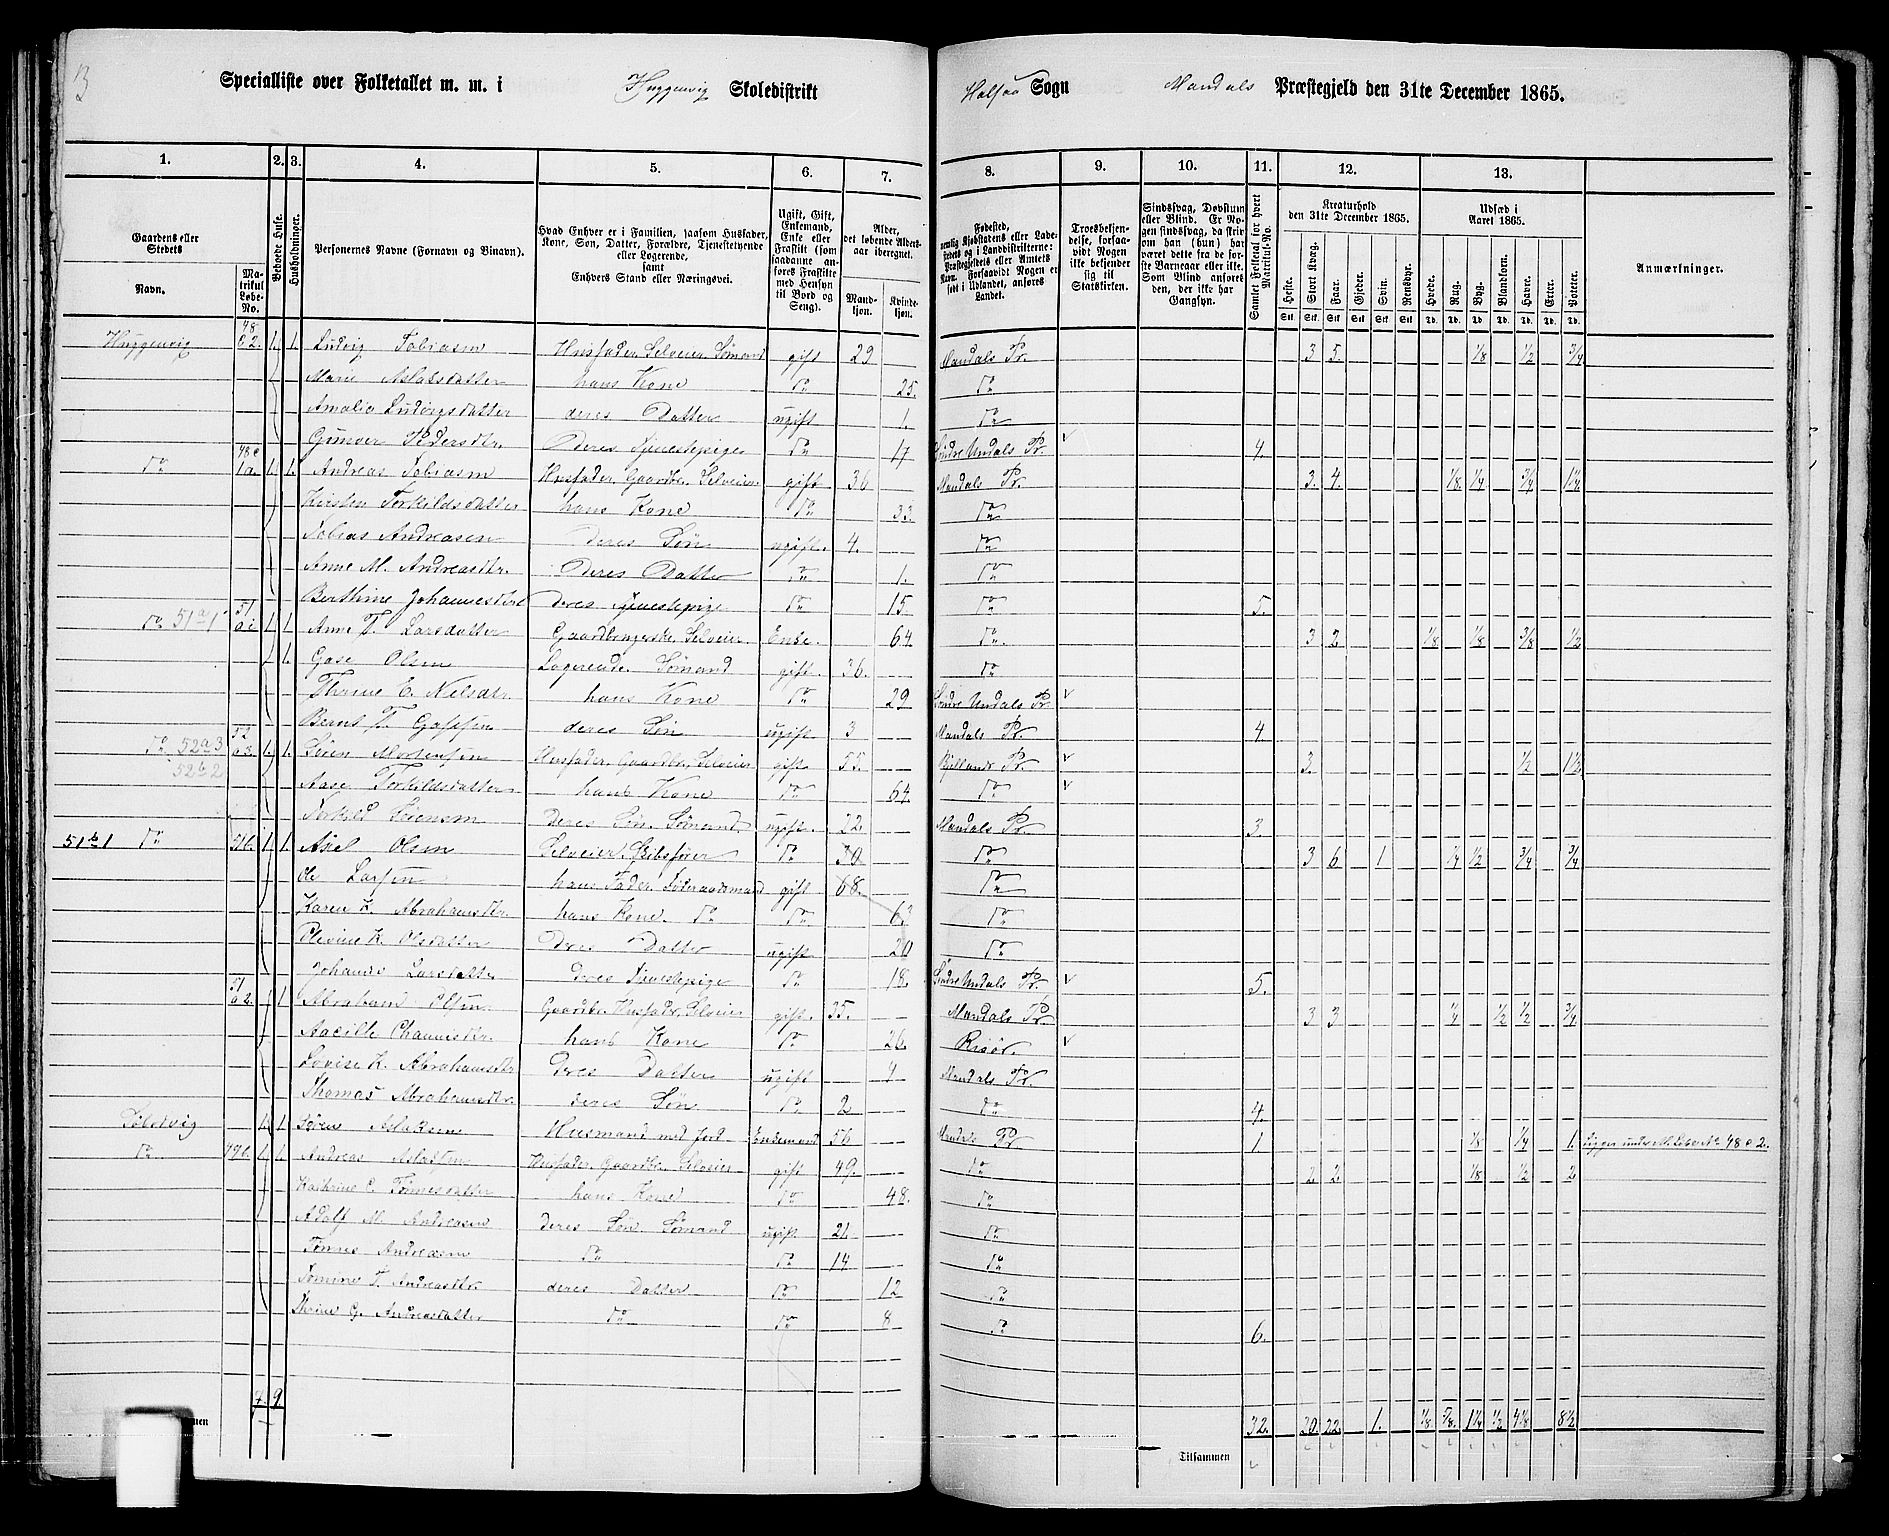 13
Specialliste over Folketallet m. m. i Huggenvig Skoledistrikt Halsaa Sogn Mandals Præstegjeld den 31te December 1865.
1. 2. 3. 4. 5. 6. 7. 8. 9. 10. 11. 12. 13.
Gaardens eller Stedets
Navn.
Matrikul Løbe-No.
Beboede Huse.
Husholdninger.
Personernes Navne (Fornavn og Binavn).
Hvad Enhver er i Familien, saasom Husfader, Kone, Søn, Datter, Forældre, Tjenestetyende eller Logerende, samt Enhvers Stand eller Næringsvei.
Ugift, Gift, Enkemand, Enke eller Fraskilt (som saadanne anføres Fraskilte med Hensyn til Bord og Seng).
Alder, det løbende Aldersaar iberegnet.
Mandkjøn. Kvindekjøn.
Fødested,
Troesbekjendelse, forsaavidt Nogen ikke bekjender sig til Statskirken.
Sindssvag, Døvstum eller Blind.
Samlet Folketal for hvert Matrikul-No.
Kreaturhold den 31te December 1865.
Heste. Stort Kvæg. Faar. Gjeder. Svin. Rensdyr.
Udsæd i Aaret 1865.
Hvede. Rug. Byg. Blandkorn. Havre. Erter. Poteter.
Anmærkninger.
Huggenvig 48 c 2. 1. 1. Ludvig Tobiasen Husfader. Selveier. Sømand gift 29 Mandals Pr. 3 5. 1/8 1/2 3/4
Marie Aslaksdatter hans Kone do 25. do
Amalia Ludvigsdatter deres Datter ugift 1. do
Gunver Pedersdtr. Deres Tjenestepige do 17 Søndre Undals Pr. 4.
do 48 c 1a. 1. 1. Andreas Tobiasen Husfader Gaardbr. Selveier gift 36 Mandals Pr. 3. 4. 1/8. 1/4 3/4 1 1/4
Kirsten Torkildsdatter hans Kone do 33. do
Tobias Andreasen Deres Søn ugift. 4. do
Anne M. Andreasdtr. Deres Datter do 1. do
Berthine Johannesdtr. Deres Tjenestepige do 15 do 5.
do 51 a 1 51 a 1 1 1 Anne T. Larsdatter Gaardbrugerske. Selveier Enke. 64. do 3 2. 1/8 1/8 3/8 1/2
1. Gase Olsen Logerende. Sømand gift. 36. do
Thrine E. Nelsdtr. hans Kone do 29 Søndre Undals Pr.
Bernt T. Gassen deres Søn ugift 3 Mandals Pr. 4.
do 52 a 3 52 a 3. 1. 1. Søren Mortensen Husfader. Gaardbr. Selveier gift. 55. Bjellands Pr. 3. 1/2 1 1/2
52 b 2 Aase Torkildsdatter hans Kone do 64. do
Torkild Sørensen Deres Søn. Sømand ugift. 22. Mandals Pr. 3.
51 b 1 do 51 b. 1 1. Axel Olsen Selveier. Skibsfører do 30 do 3 6 1 1/4 1/2 3/4 3/4
Ole Larsen hans Fader. Føderaadsmand gift 68. do
Karen K. Abrahamsdtr. hans Kone. do do 63 do
Olevine K. Olsdatter Deres Datter ugift 20 do
Johanne Larsdatter deres Tjenestepige do 18. Søndre Undals Pr. 5.
51 a 2. 1 1 Abraham Olsen Gaardbr. Husfader. Selveier gift. 35. Mandals Pr. 3 3. 1/4 1/2 1/2 3/4
hans Kone do 26. Risør.
Lovise K. Abrahamsdtr. Deres Datter ugift 4 Mandals Pr.
Thomas Abrahamsdtr. deres Søn do 2 do 4.
1. 1 Søren Aslaksen Husmand med Jord Enkemand 56 Mandals Pr 1 1/8 1/4 1.
do 49 b. 1. 1. Andreas Aslaksen Husfader. Gaardbr. Selveier gift 49. do 2 2. 1/8 1/2 2
Kathrine C. Tønnesdatter hans Kone do 48. do
Adolf M. Andreasen deres Søn Sømand ugift 21. do
Tønnes Andreasen do do 14 do
Tomine T. Andreasdtr. deres Datter do 12 do
Thrine G. Andreasdatter do do 8 do 6.
7 9
Tilsammen 32. 20. 22. 1. 1/8 5/8. 1 1/4 1/2 4 1/8 8 1/2